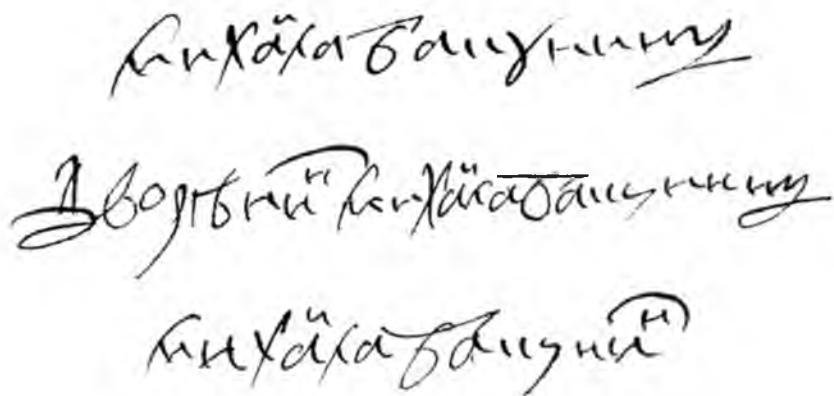 михайла бакунинъ
Дворѣнин михайла бакунинъ
михайла бакунин